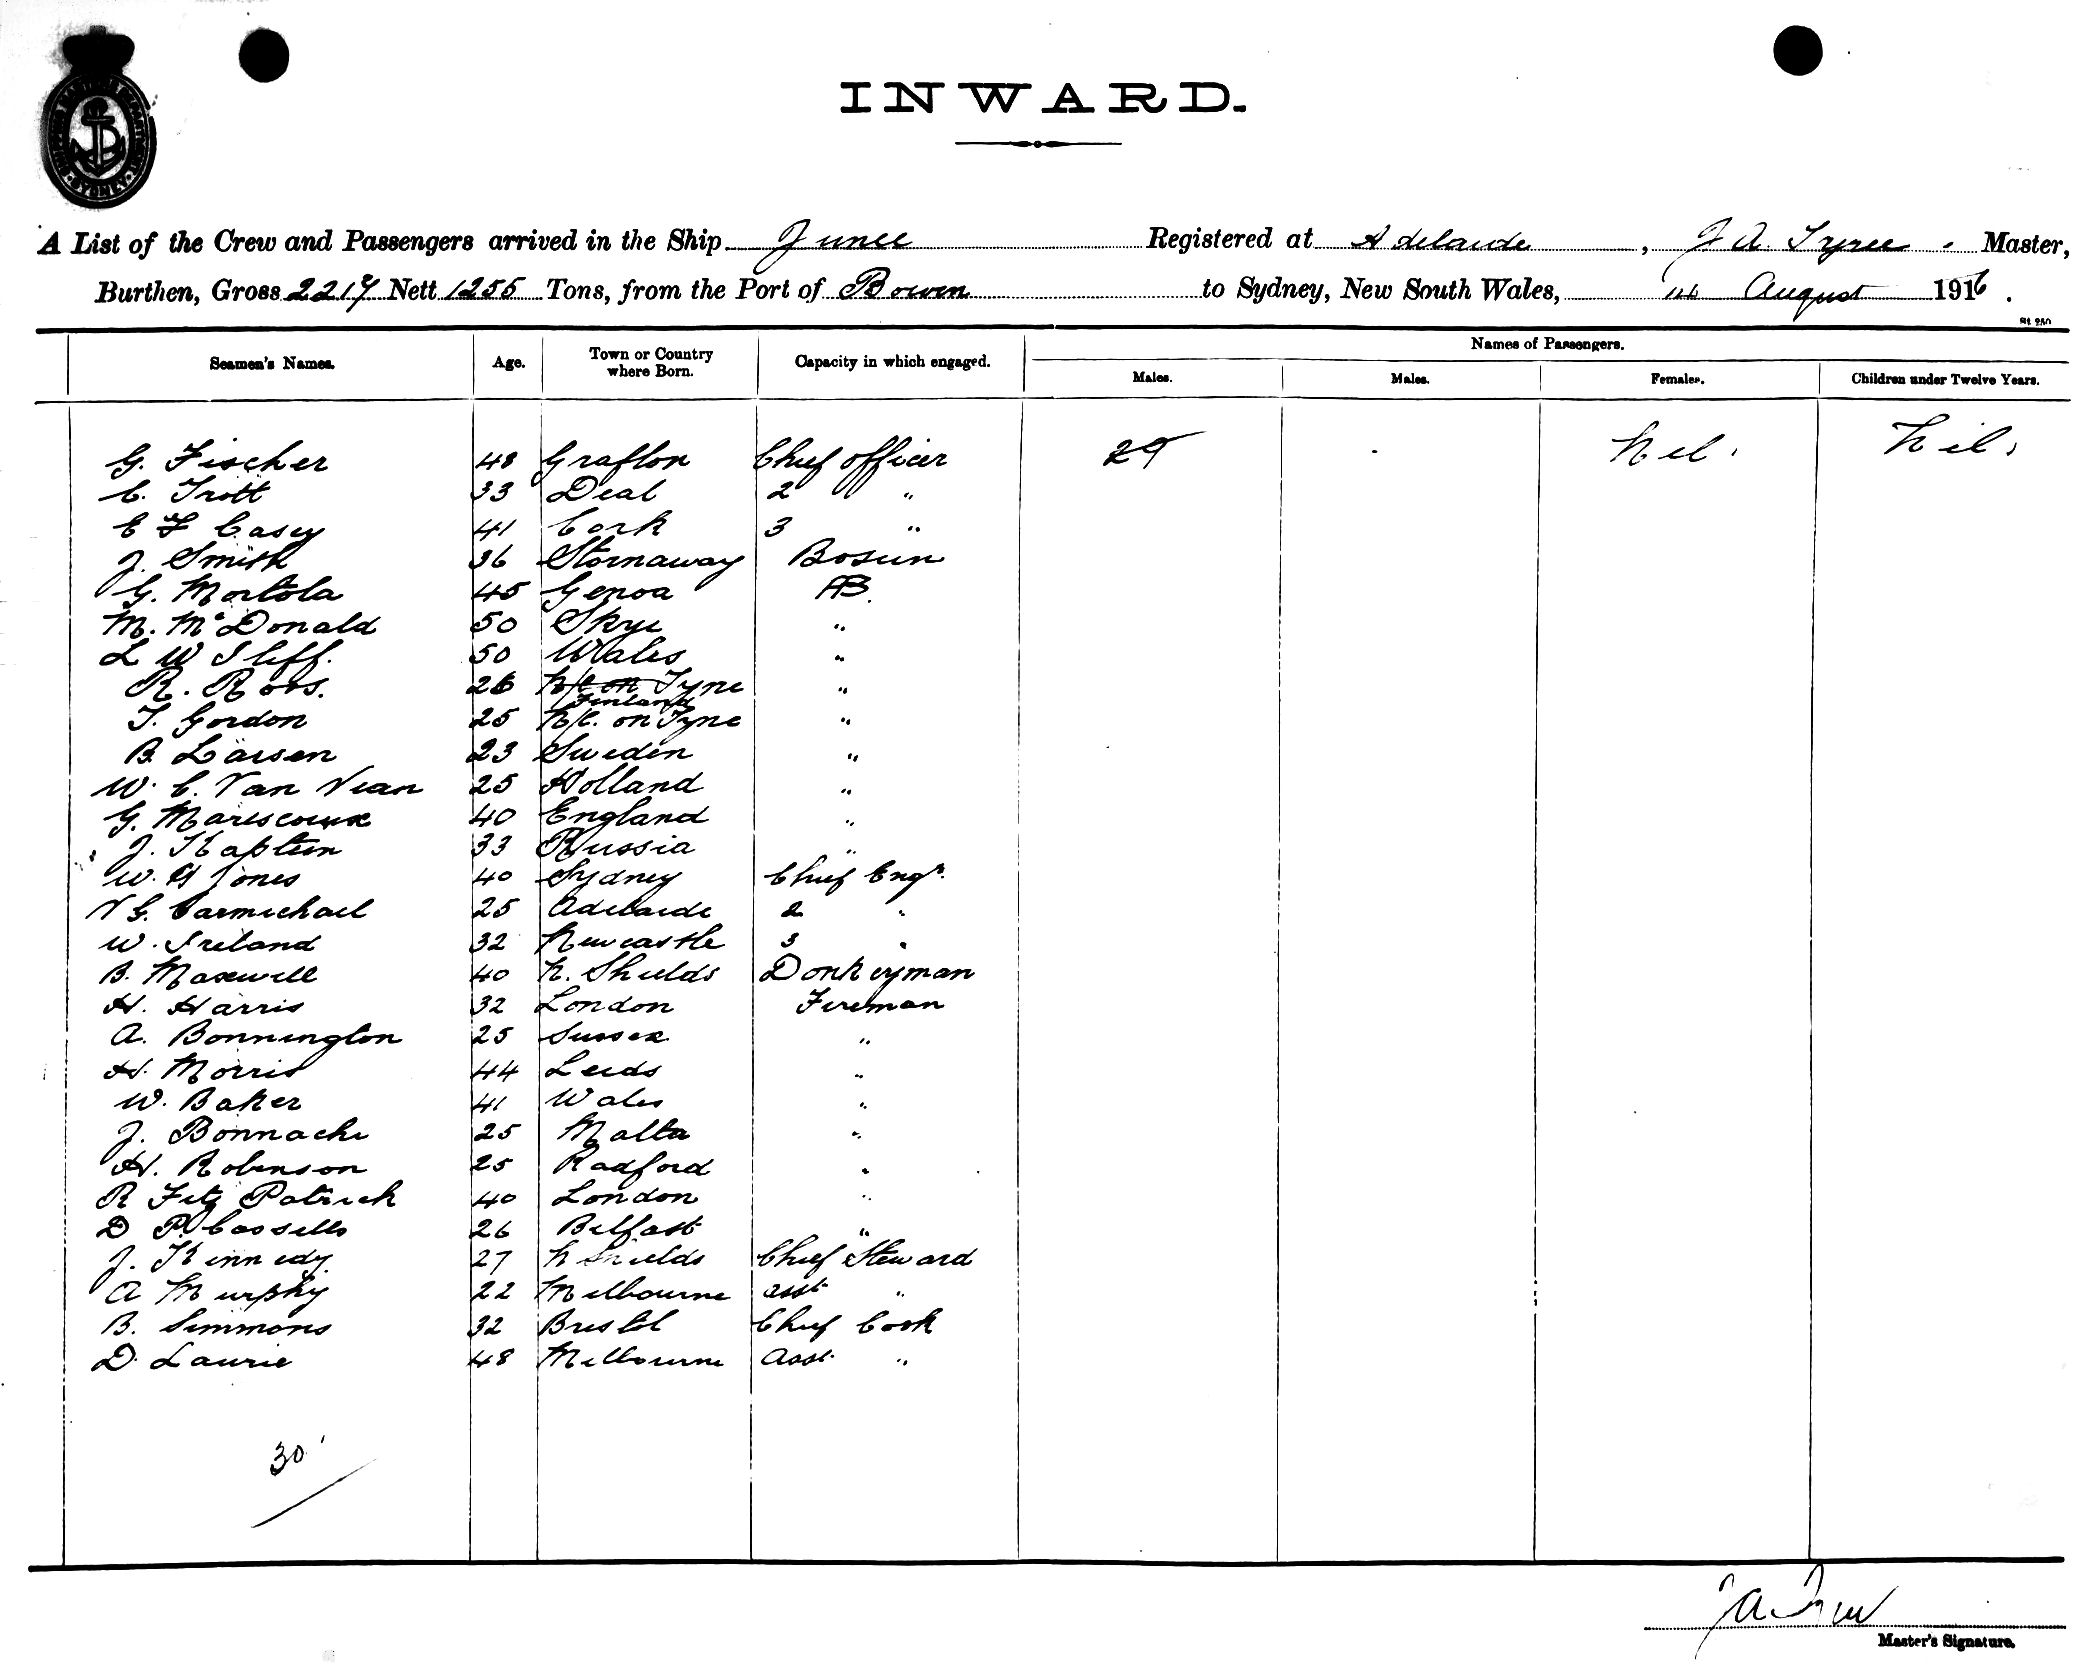 INWARD.
A List of the Crew and Passengers arrived in the Ship Junee Registered at Adelaide, J A. Tyree. Master,
Burthen, Gross 2217 Nett 1255 Tons, from the Port of Bowen to Sydney, New South Wales, August 1916.
Seamen's Names. Age. Town or Country where Born. Capacity in which engaged. Names of Passengers.
Males. Males. Females. Children under Twelve Years.
G. Fischer 48 Grafton Chief Officer 29 Nil. Nil.
C. Trott 33 Deal 2 "
E F Casey 41 Cork 3 "
J. Smith 36 Stornaway Bosun
G. Mortola 45 Genoa AB.
M. McDonald 50 Skye "
L W Iliff. 50 Wales "
R. Roos. 26 N/C on Tyne "
Finland
T. Gordon 25 N/C. on Tyne "
B. Larsen 23 Sweden "
W. C. Van Vean 25 Holland "
G. Mariscoux 40 England "
J. Kaptein 33 Russia "
W. H Jones 40 Sydney Chief Engr.
V G. Carmichael 25 Adelaide 2 "
W. Ireland 32 Newcastle 3 "
B. Maxwell 40 N. Shields Donkeyman
H. Harris 32 London Fireman
A. Bonnington 25 Sussex "
H. Morris 44 Leeds "
W. Baker 41 Wales "
J. Bonnachi 25 Malta "
H. Robinson 25 Radford "
R Fitz Patrick 40 London "
D P. Cassells 26 Belfast "
J. Kennedy 27 N Shields Chief Steward
A Murphy 22 Melbourne asst "
B. Simmons 32 Bristol Chief Cook
D. Laurie 48 Melbourne Asst. "
30
J A Tyree
Master's Signature.